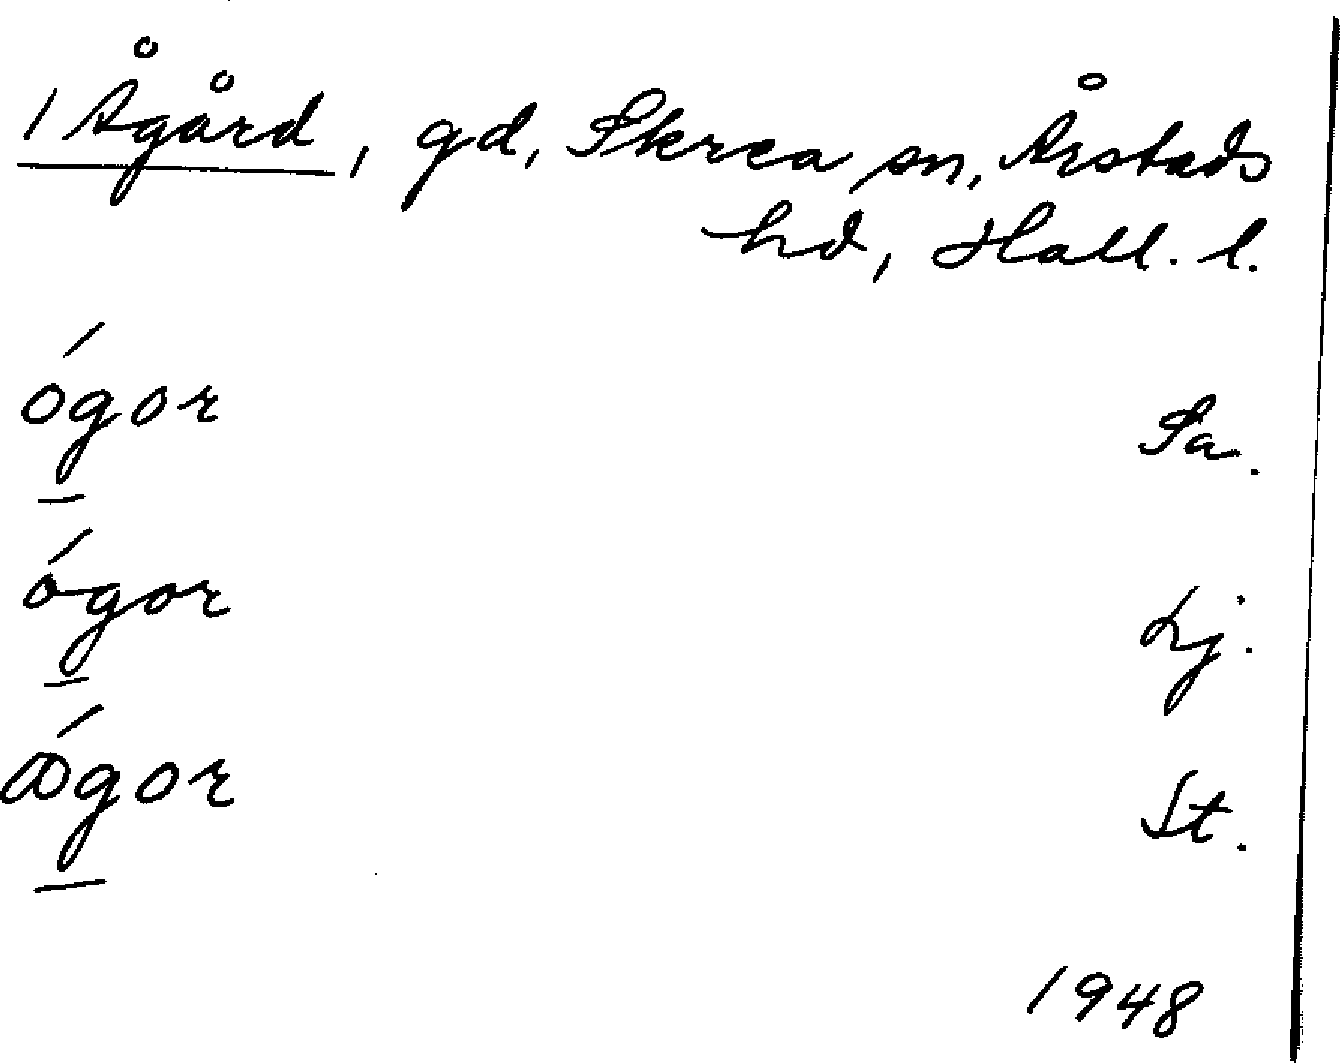 1 Ågård, gd, Skrea sn, Årstads
hd, Hall. l.
ógor Sa.
ógor Lj.
ǿgor St.
1948